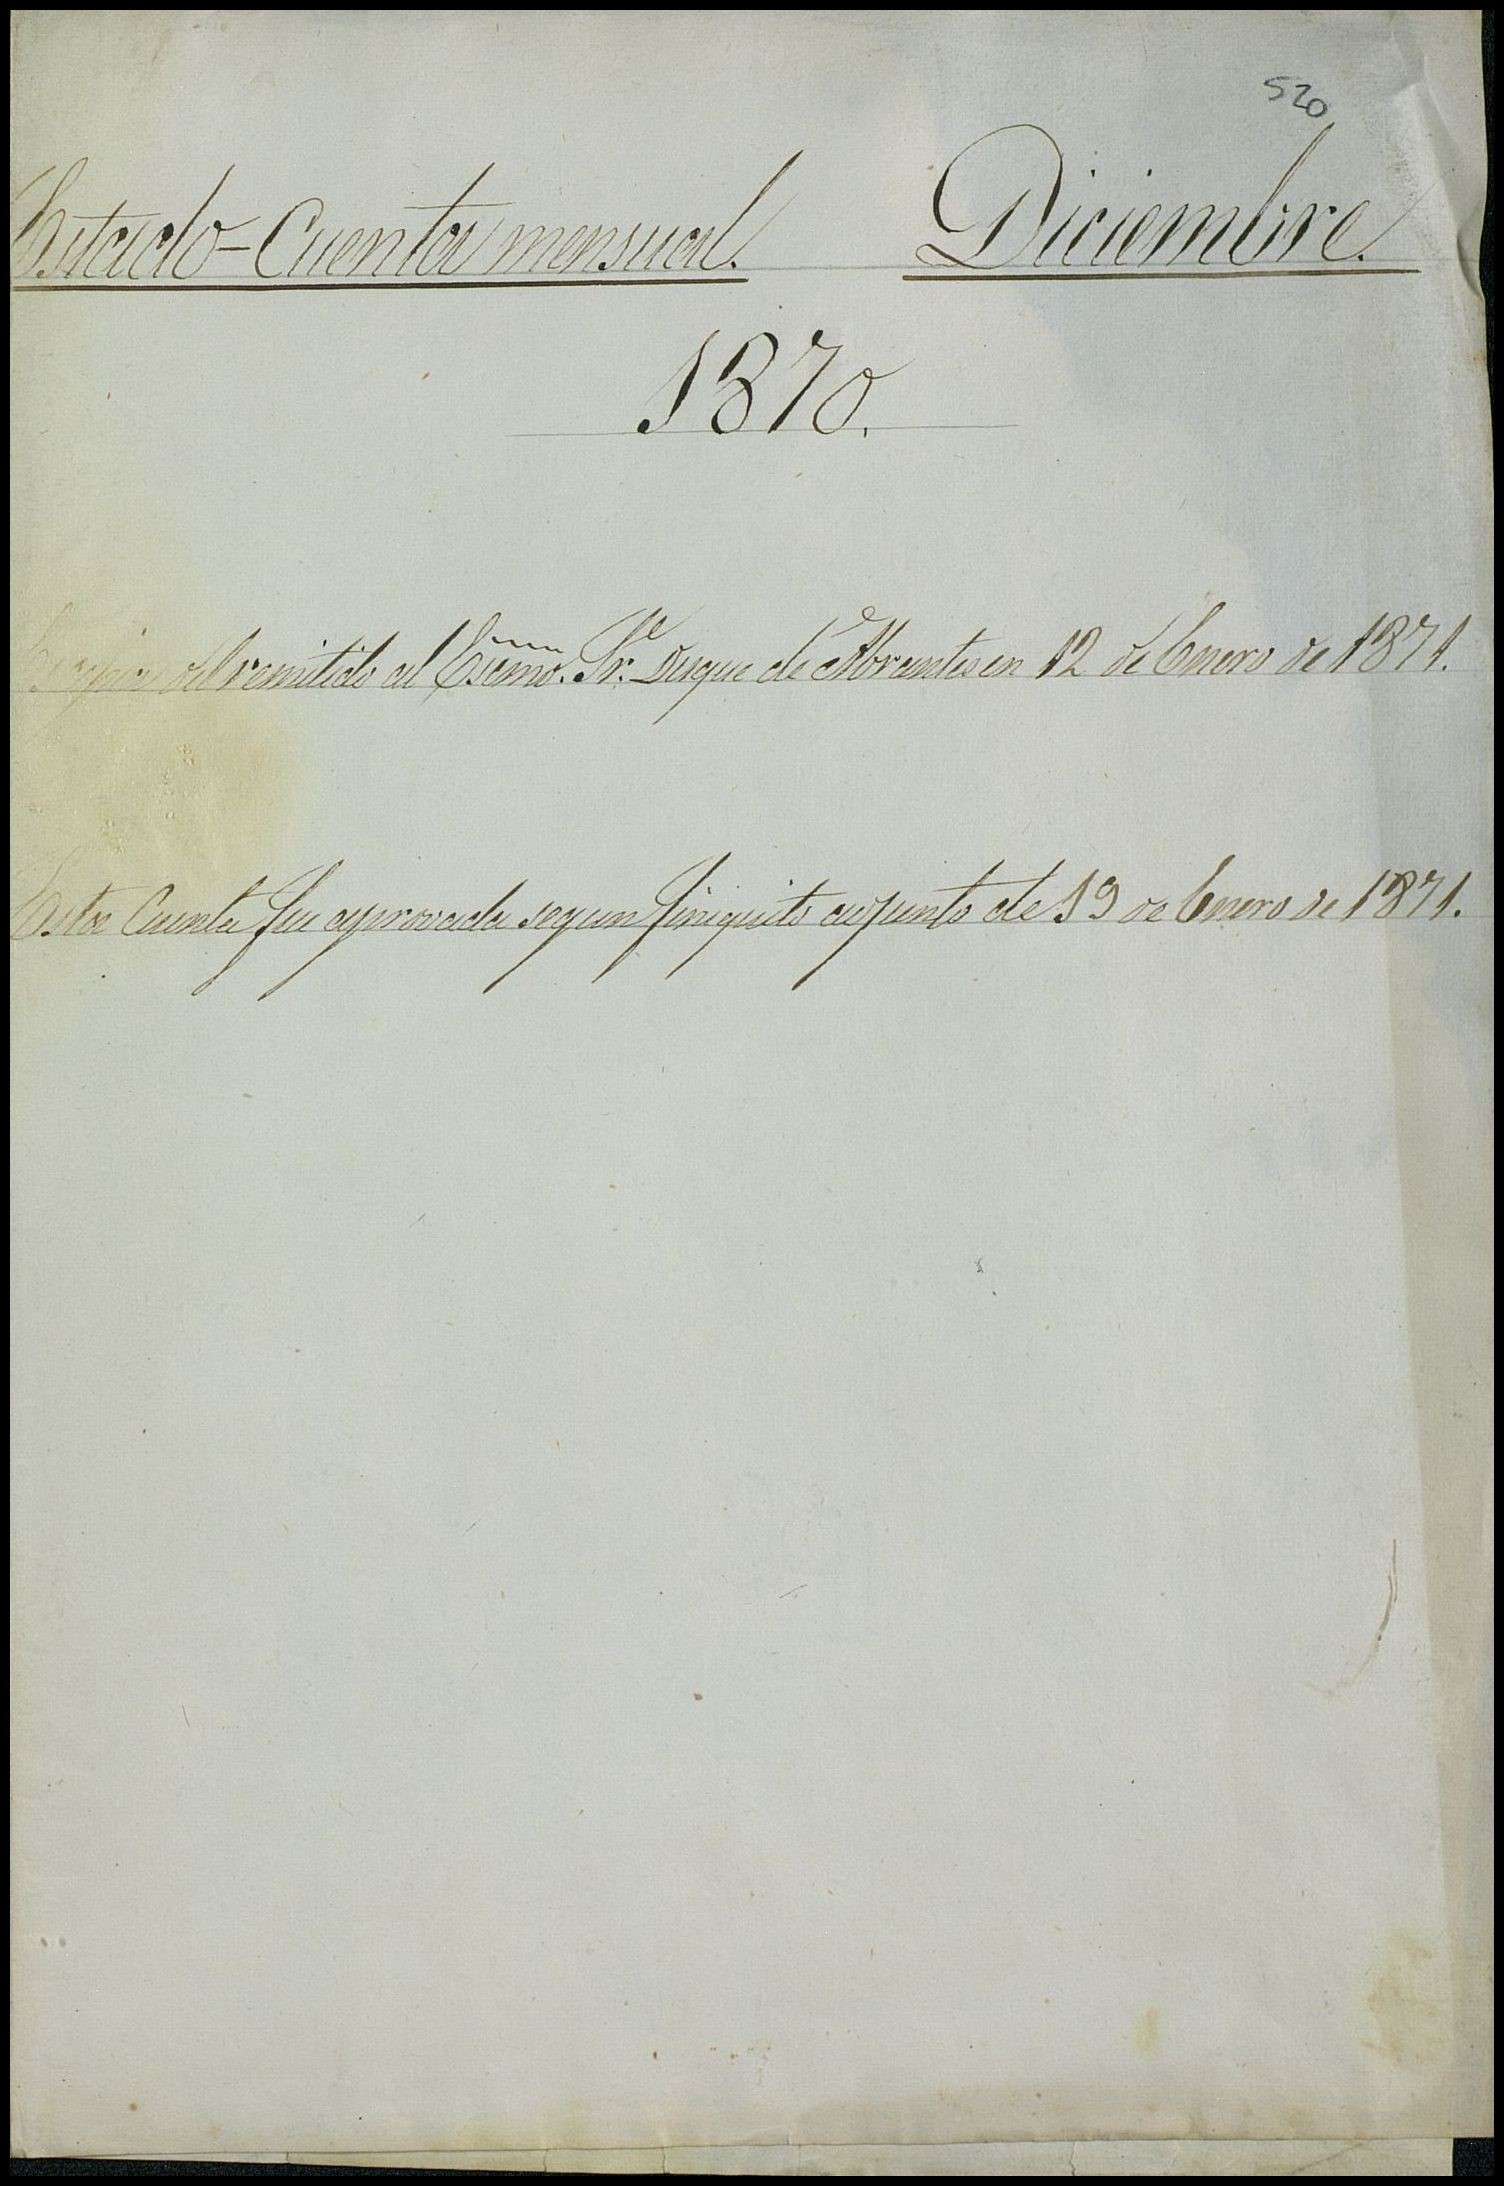 520
Estado-Cuenta mensual. Diciembre.
1870.
Copia del remitido al Escmo. Sr. Duque de Abrantes en 12 de Enero de 1871.
Esta Cuenta fue aprovada segun finiquito adjunto de 19 de Enero de 1871.